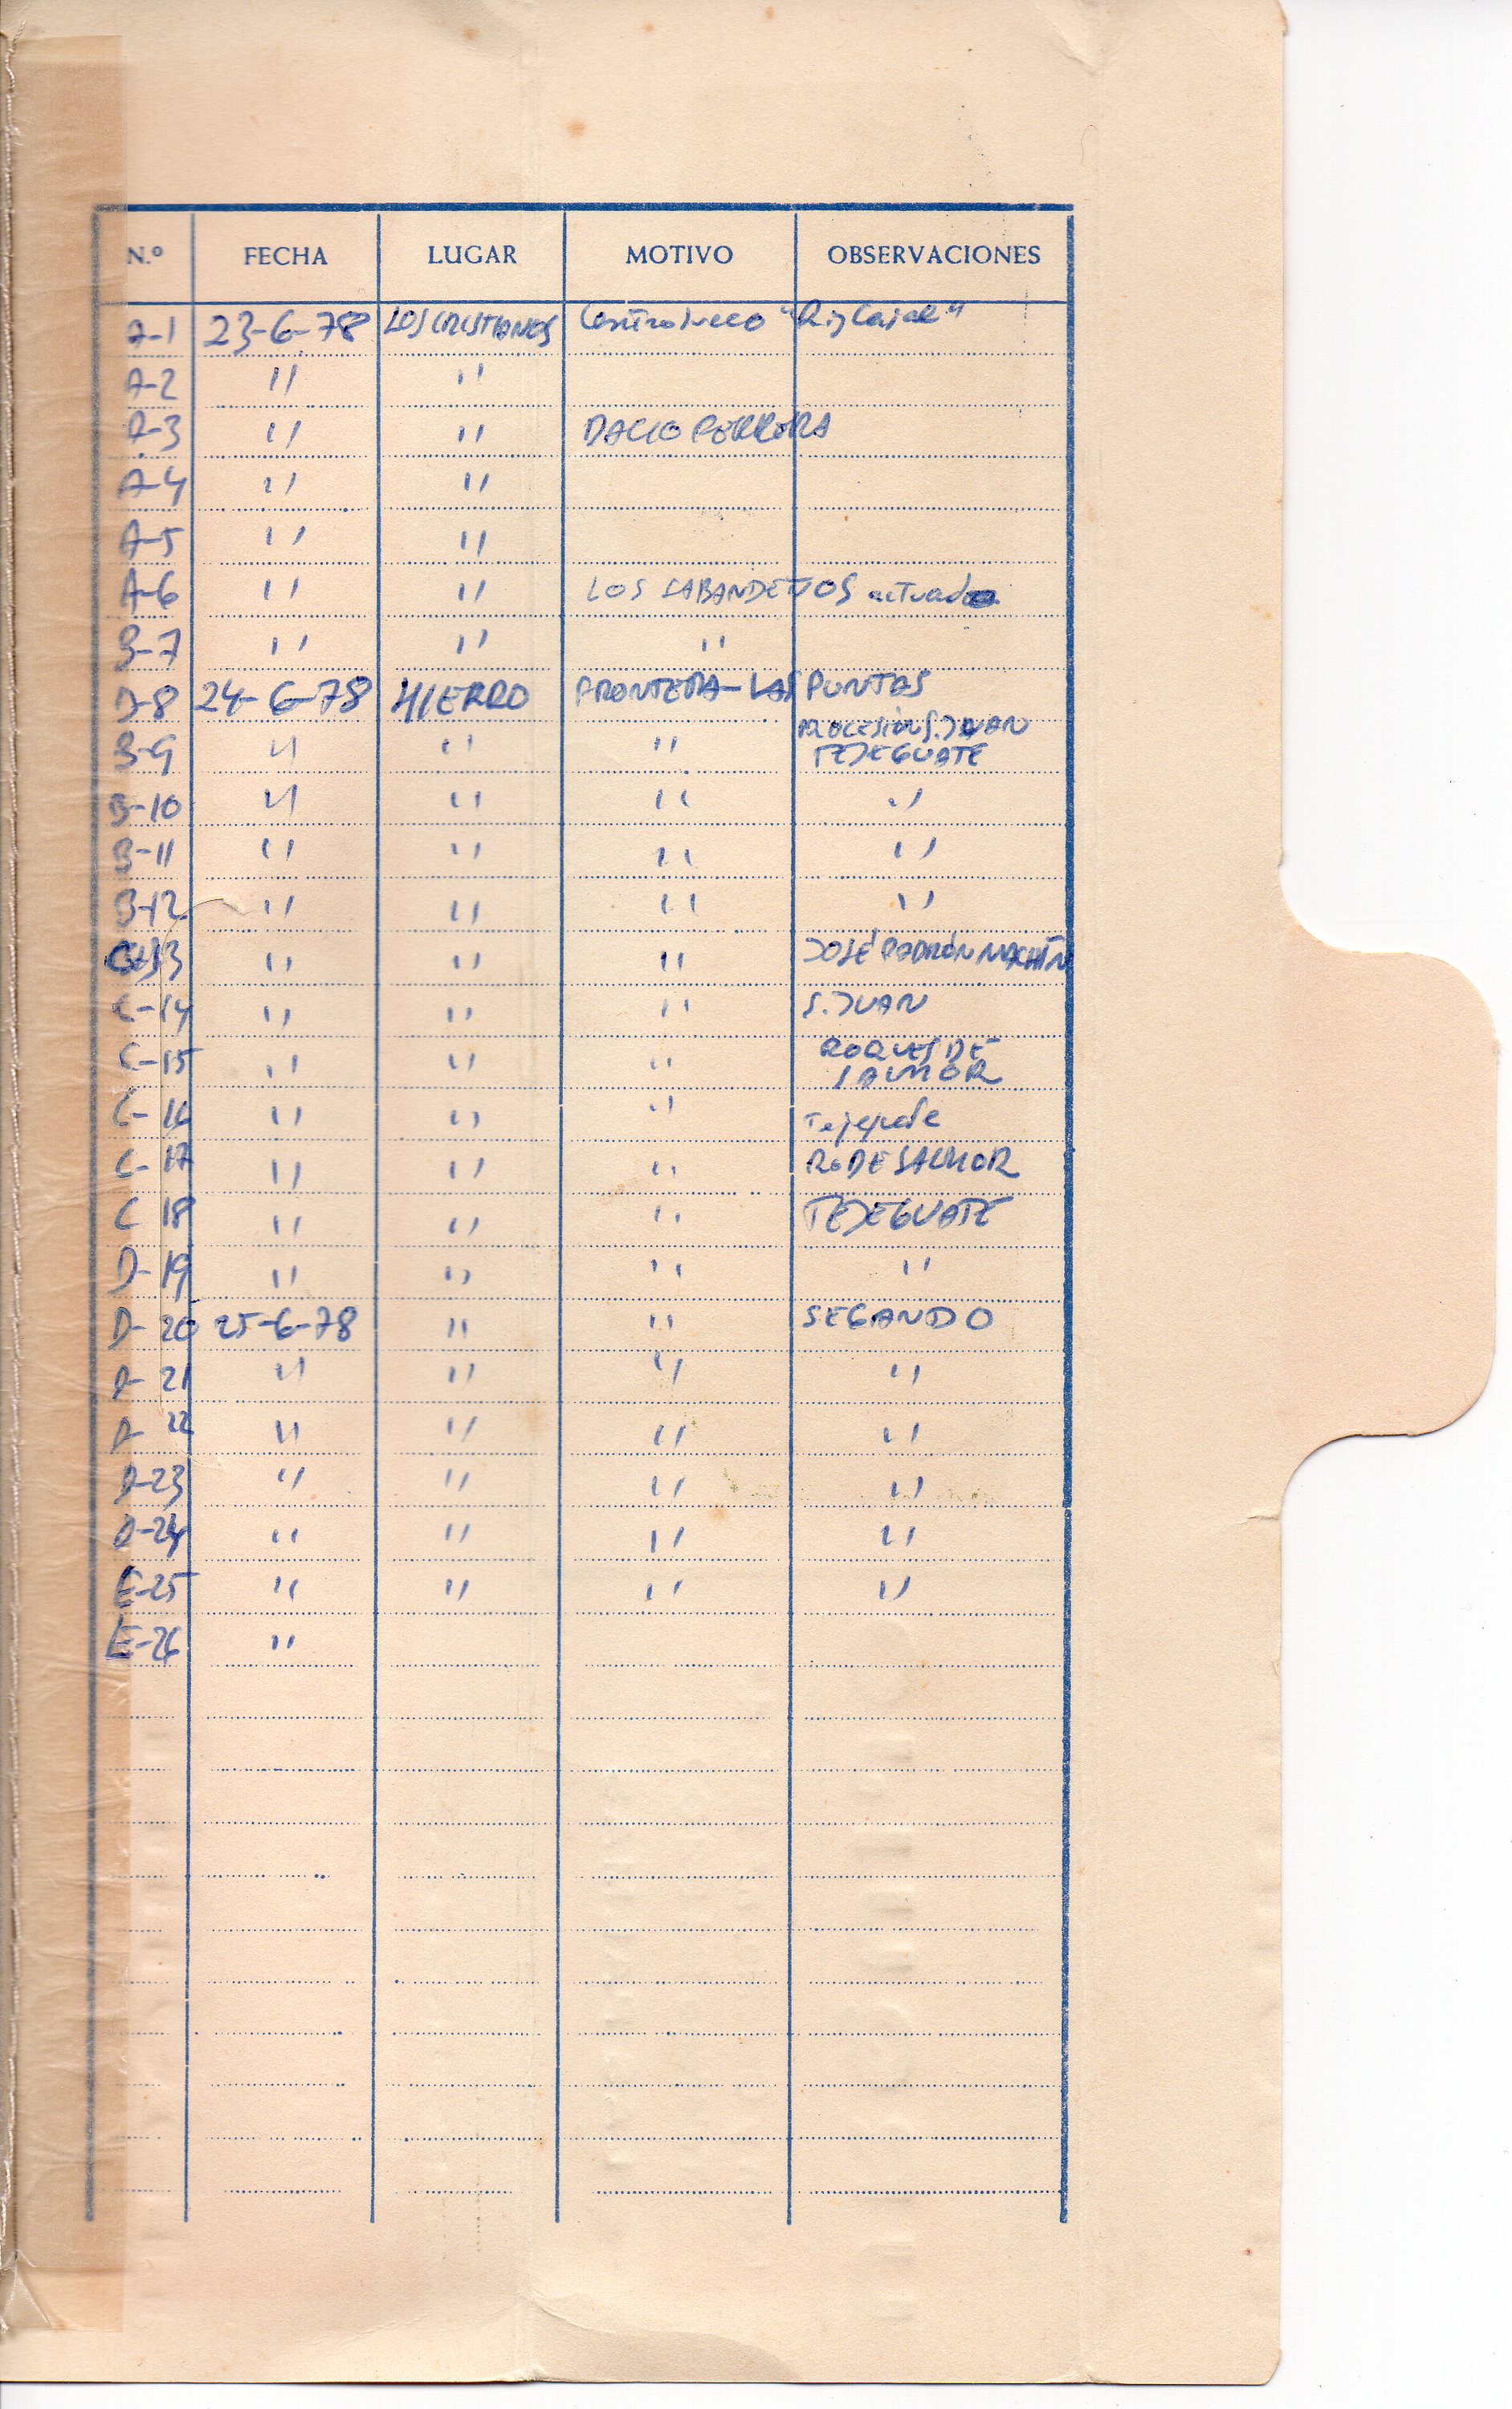 N.º FECHA LUGAR MOTIVO OBSERVACIONES
A-1 23-6-78 LOS CRISTIANOS Centro "R. y Cajal"
A-2 " "
A-3 " " DACIO FERRERA
A-4 " "
A-5 " "
A-6 " " LOS SABANDEÑOS actuando
B-7 " " "
B-8 24-6-78 HIERRO FRONTERA-LAS PUNTAS
PROCESIÓN S. JUAN
B-9 " " " TEJEGUATE
B-10 " " " "
B-11 " " " "
B-12 " " " "
C-13 " " " JOSÉ PADRÓN MACHÍN
C-14 " " " S. JUAN
C-15 " " " ROQUES DE
SALMOR
C-16 " " "
C-17 " " " R. DE SALMOR
C 18 " " " TEJEGUATE
D-19 " " " "
D-20 25-6-78 " " SEGANDO
D-21 " " " "
D-22 " " " "
D-23 " " " "
D-24 " " " "
E-25 " " " "
E-26 "